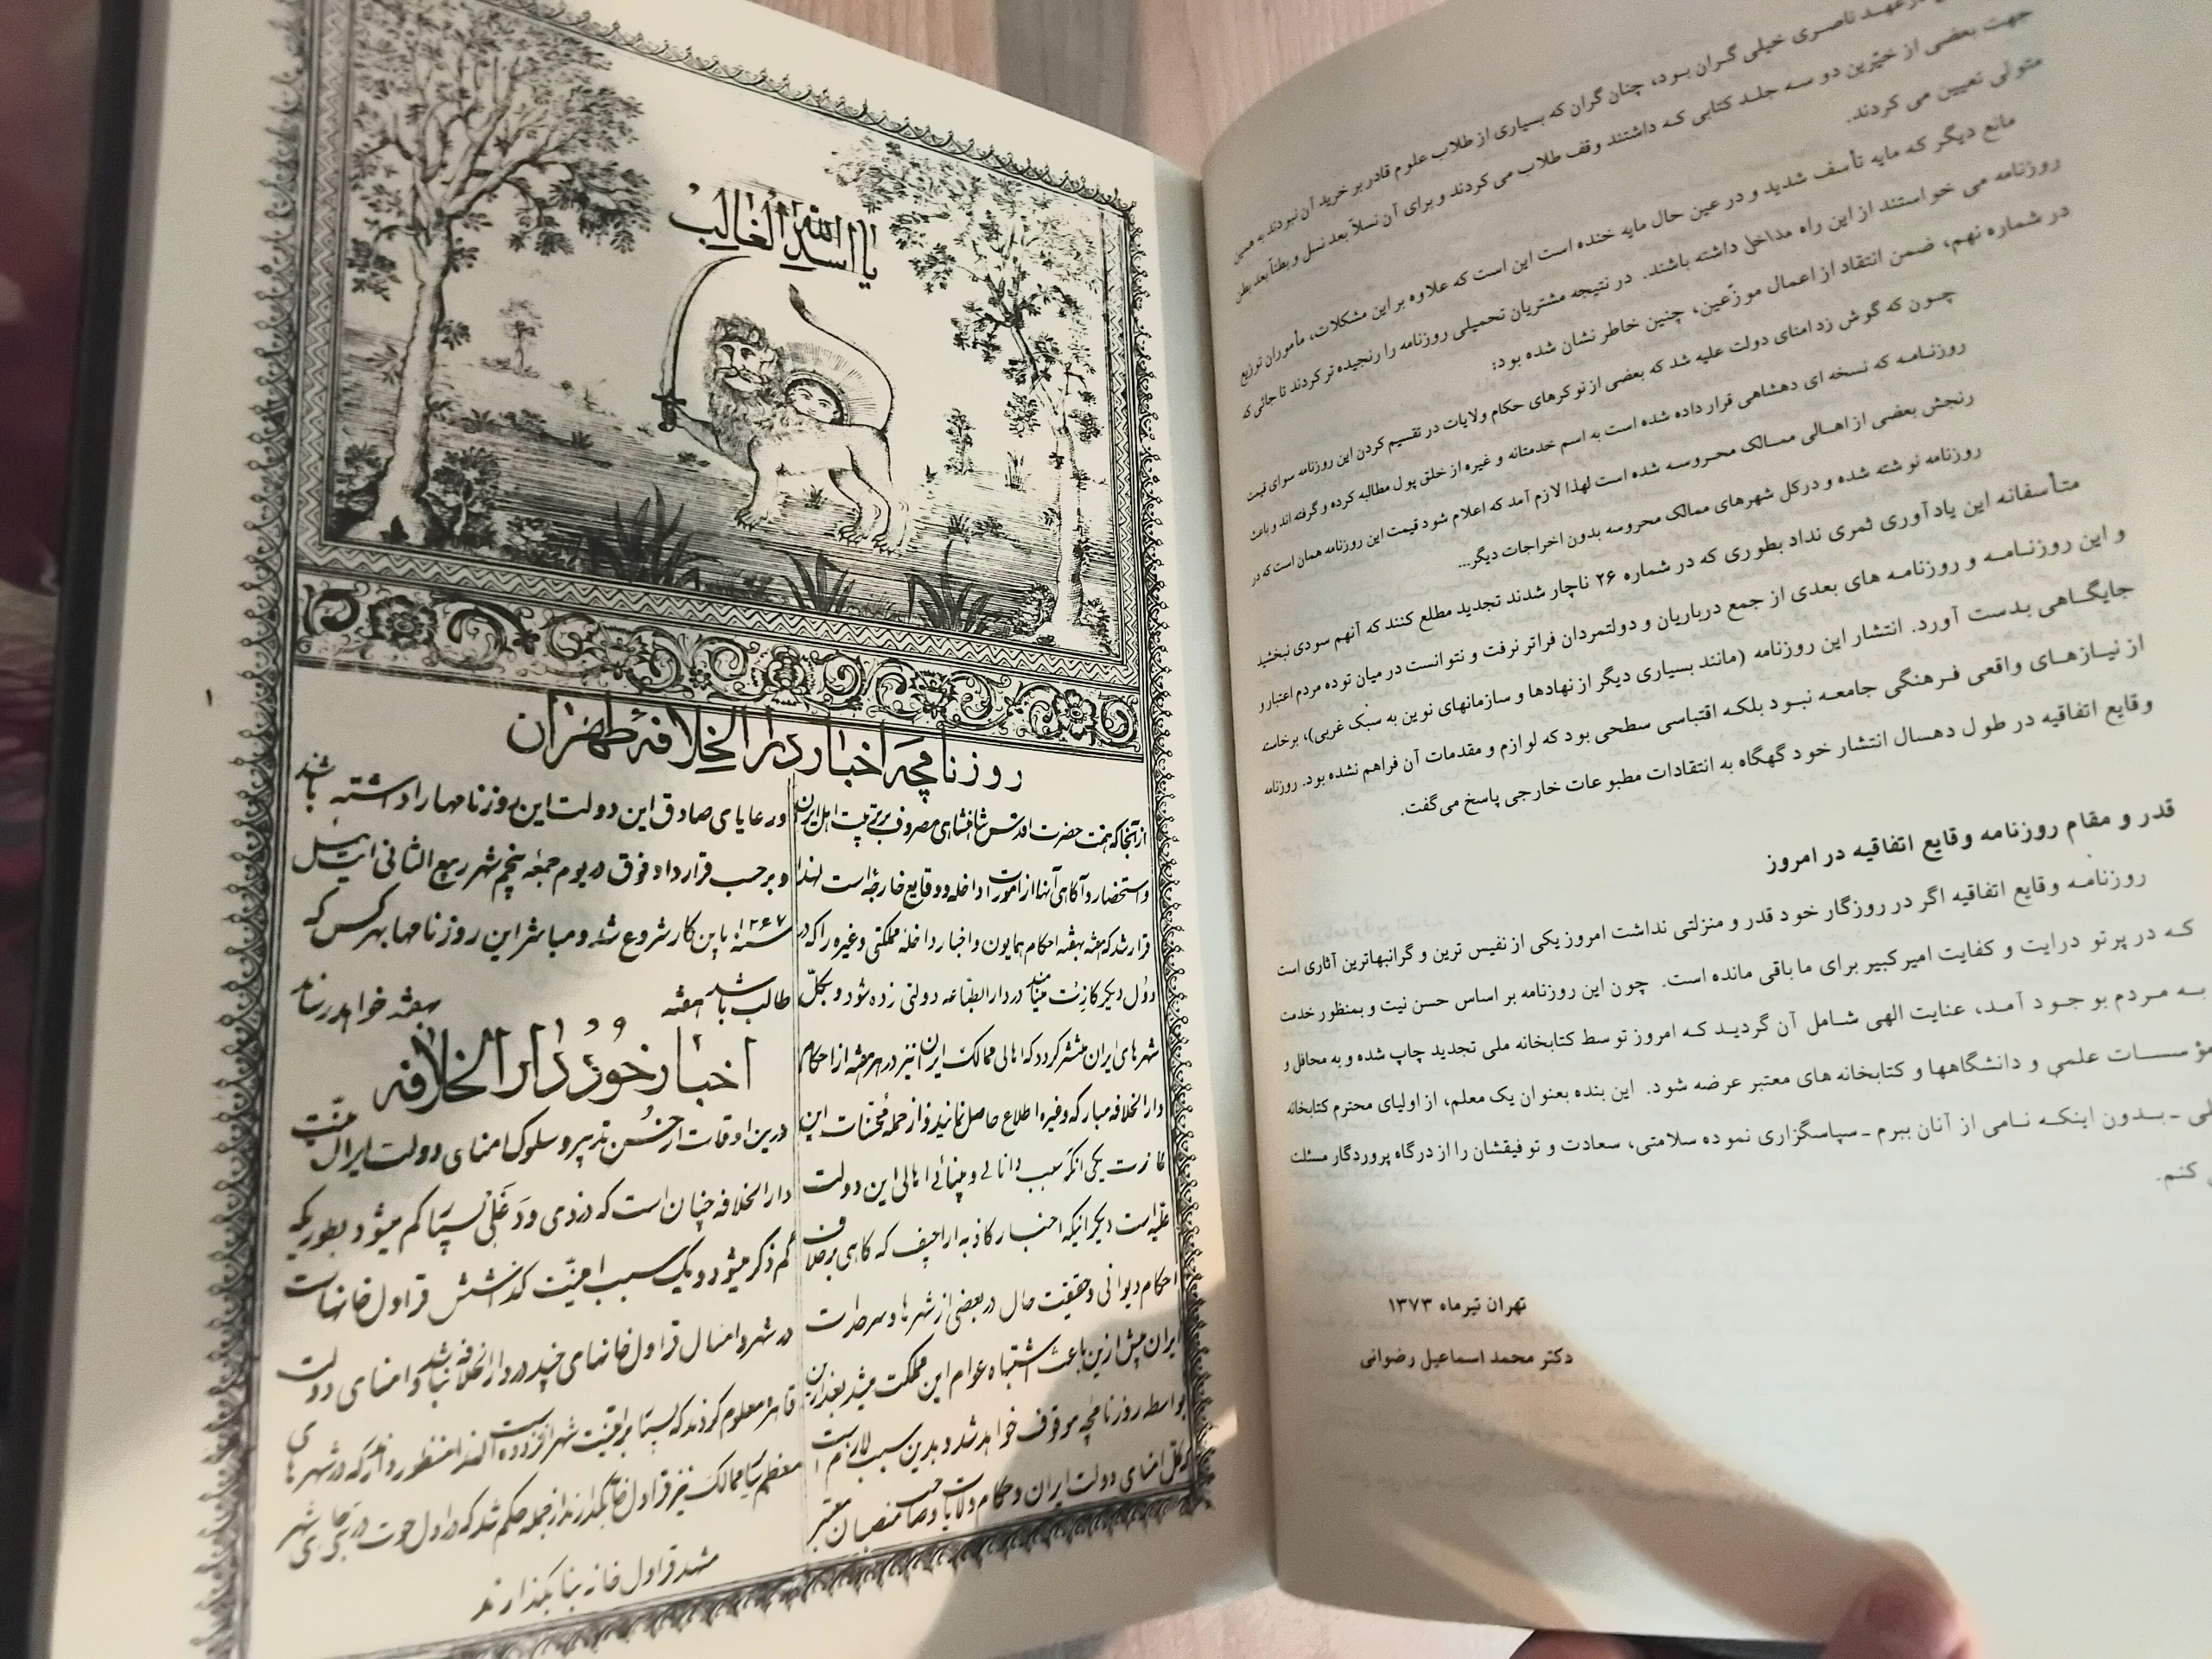 عهد ناصری خیلی گران بود، چنان گران که بسیاری از طلاب علوم قادر بر خرید آن نبودند به همین
جهت بعضی از خیّرین دو سه جلد کتابی که داشتند وقف طلاب می کردند و برای آن نسلاً بعد نسل و بطناً بعد بطن
متولی تعیین می کردند.
مانع دیگر که مایه تأسف شدید و در عین حال مایه خنده است این است که علاوه بر این مشکلات، مأموران توزیع
روزنامه می خواستند از این راه مداخل داشته باشند. در نتیجه مشتریان تحمیلی روزنامه را رنجیده تر کردند تا جائی که
در شماره نهم، ضمن انتقاد از اعمال موزّعین، چنین خاطر نشان شده بود:
چون که گوش زد امنای دولت علیه شد که بعضی از نوکرهای حکام ولایات در تقسیم کردن این روزنامه سوای قیمت
روزنامه که نسخه ای دهشاهی قرار داده شده است به اسم خدمتانه و غیره از خلق پول مطالبه کرده و گرفته اند و باعث
رنجش بعضی از اهالی ممالک محروسه شده است لهذا لازم آمد که اعلام شود قیمت این روزنامه همان است که در
روزنامه نوشته شده و درکل شهرهای ممالک محروسه بدون اخراجات دیگر...
متأسفانه این یادآوری ثمری نداد بطوری که در شماره ۲۶ ناچار شدند تجدید مطلع کنند که آنهم سودی نبخشید
و این روزنامه و روزنامه های بعدی از جمع درباریان و دولتمردان فراتر نرفت و نتوانست در میان توده مردم اعتبار و
جایگاهی بدست آورد. انتشار این روزنامه (مانند بسیاری دیگر از نهادها و سازمانهای نوین به سبک غربی)، برخاسته
از نیازهای واقعی فرهنگی جامعه نبود بلکه اقتباسی سطحی بود که لوازم و مقدمات آن فراهم نشده بود. روزنامه
وقایع اتفاقیه در طول دهسال انتشار خود گهگاه به انتقادات مطبوعات خارجی پاسخ می‌گفت.
قدر و مقام روزنامه وقایع اتفاقیه در امروز
روزنامه وقایع اتفاقیه اگر در روزگار خود قدر و منزلتی نداشت امروز یکی از نفیس ترین و گرانبهاترین آثاری است
که در پرتو درایت و کفایت امیرکبیر برای ما باقی مانده است. چون این روزنامه بر اساس حسن نیت و بمنظور خدمت
به مردم بوجود آمد، عنایت الهی شامل آن گردید که امروز توسط کتابخانه ملی تجدید چاپ شده و به محافل و
مؤسسات علمی و دانشگاهها و کتابخانه های معتبر عرضه شود. این بنده بعنوان یک معلم، از اولیای محترم کتابخانه
ملی ـ بدون اینکه نامی از آنان ببرم ـ سپاسگزاری نموده سلامتی، سعادت و توفیقشان را از درگاه پروردگار مسئلت
کنم.
تهران تیرماه ۱۳۷۳
دکتر محمد اسماعیل رضوانی
یا اسد الله الغالب
روزنامچه اخبار دار الخلافه طهران
از آنجا که همت حضرت اقدس شاهنشاهی مصروف بر تربیت اهل ایران
و استحضار و آگاهی آنها از امورات داخله و وقایع خارجه است لهذا
قرار شد که هفته بهفته احکام همایون و اخبار داخله مملکتی و غیره را که در
دول دیگر گازت مینامند در دار الطباعه دولتی زده شود و بکل
شهرهای ایران منتشر گردد که اهالی ممالک ایران نیز در هر هفته از احکام
دار الخلافه مبارکه و غیره اطلاع حاصل نمایند و از جمله محسنات این
گازت یکی آنکه سبب دانائی و بینائی اهالی این دولت
علیه است دیگر اینکه اخبار کاذبه اراجیف که گاهی برخلاف
احکام دیوانی و حقیقت حال در بعضی از شهرها و سرحدات
ایران پیش ازین باعث اشتباه عوام این مملکت میشد بعد ازین
بواسطه روزنامچه موقوف خواهد شد و بدین سبب لازم است
که کل امنای دولت ایران و حکام ولایات و صاحب منصبان معتبر
و رعایای صادق این دولت این روزنامها را داشته باشند
و برحسب قرارداد فوق در یوم جمعه پنجم شهر ربیع الثانی ایت ئیل
سنه ۱۲۶۷ باین کار شروع شد و مباشر این روزنامها بهر کس که
طالب باشد هفته بهفته خواهد رساند
اخبار خود دار الخلافه
درین اوقات از حسن تدبیر و سلوک امنای دولت ایران امنیت
دار الخلافه چنان است که دزدی و دغلی بسیار کم میشود بطوریکه
کم ذکر میشود و یک سبب امنیت گذاشتن قراول خانهاست
در شهر و امسال قراول خانهای چند در دار الخلافه بنا شد و امنای دولت
قاهره معلوم کردند که بسیار بر امنیت شهر افزوده است لهذا منظور دارند که در شهرهای
معظم سایر ممالک نیز قراول خانه بگذارند از جمله حکم شد که در اول حوت در جای شهر
مشهد قراول خانه بنا بگذارند
۱